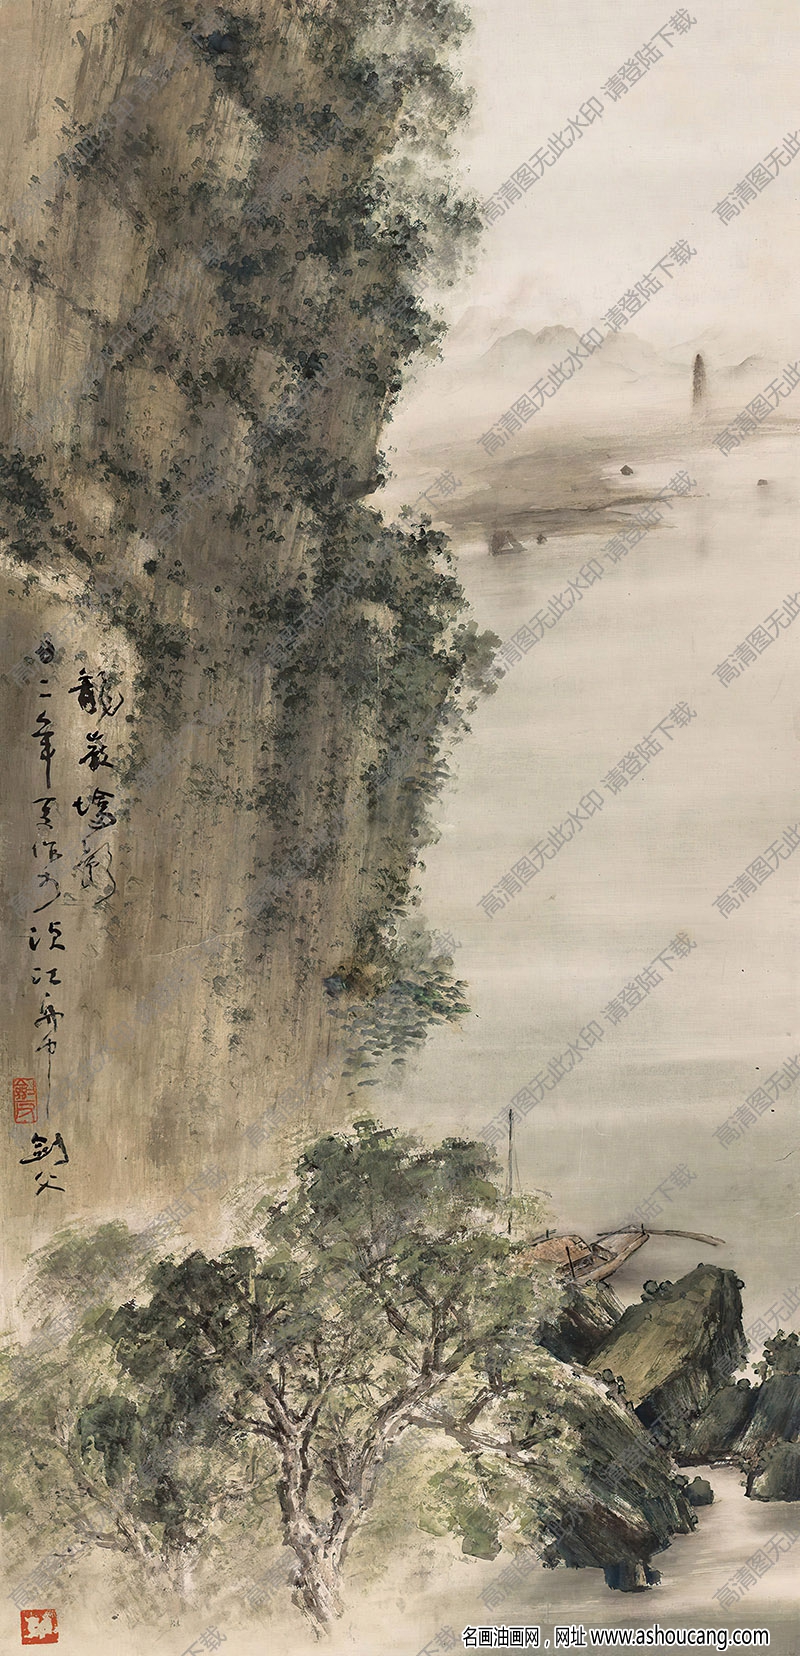 龍巖塔影
廿二年夏作於
湞江舟中
劍父
劍父
高清图无此水印 请登陆下载
名画油画网，网址 www.ashoucang.com